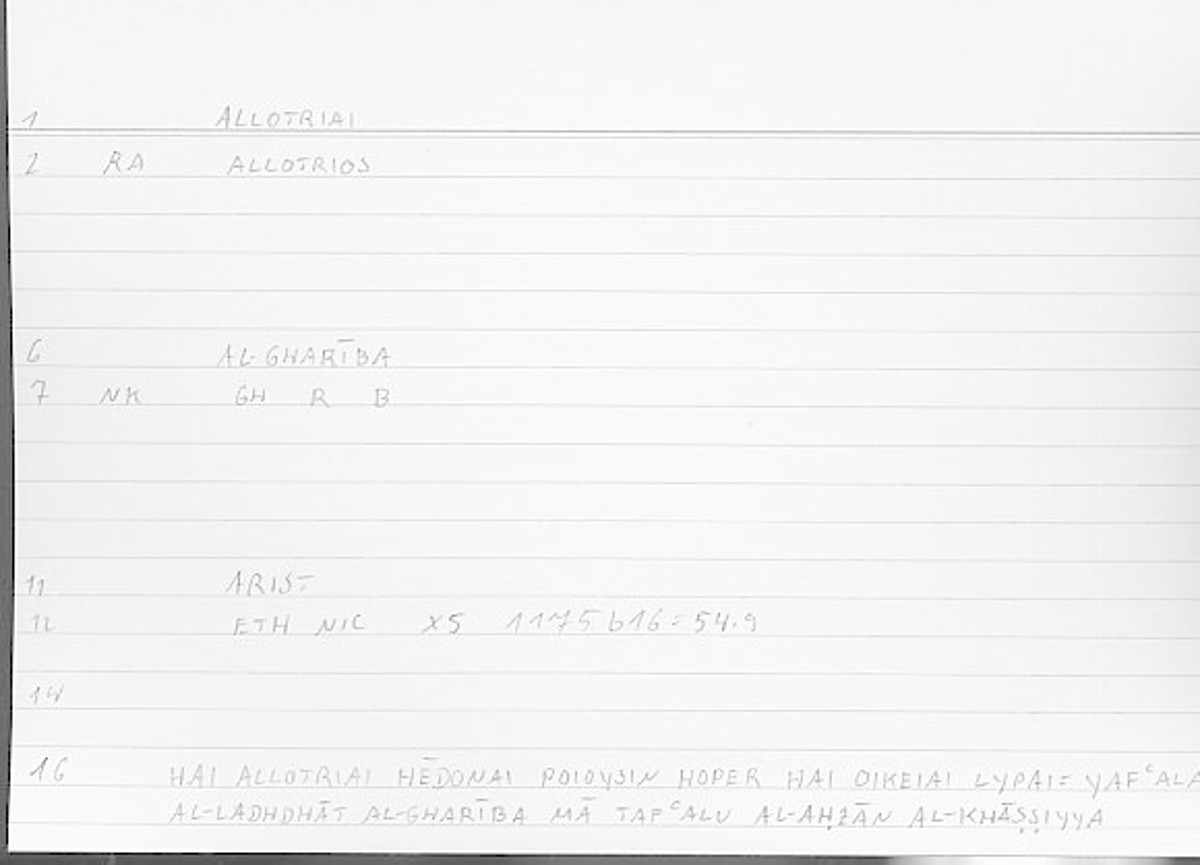 1 ALLOTRIAI
2 RA ALLOTRIOS
6 AL-GHARĪBA
7 NK GH R B
11 ARIST
12 ETH NIC X5 1175b16=54.9
14
16 HAI ALLOTRIAI HĒDONAI POIOYSIN HOPER HAI OIKEIAI LYPAI= YAFᶜALA
AL-LADHDHĀT AL-GHARĪBA MĀ TAFᶜALU AL-AḤZĀN AL-KHĀṢṢIYYA